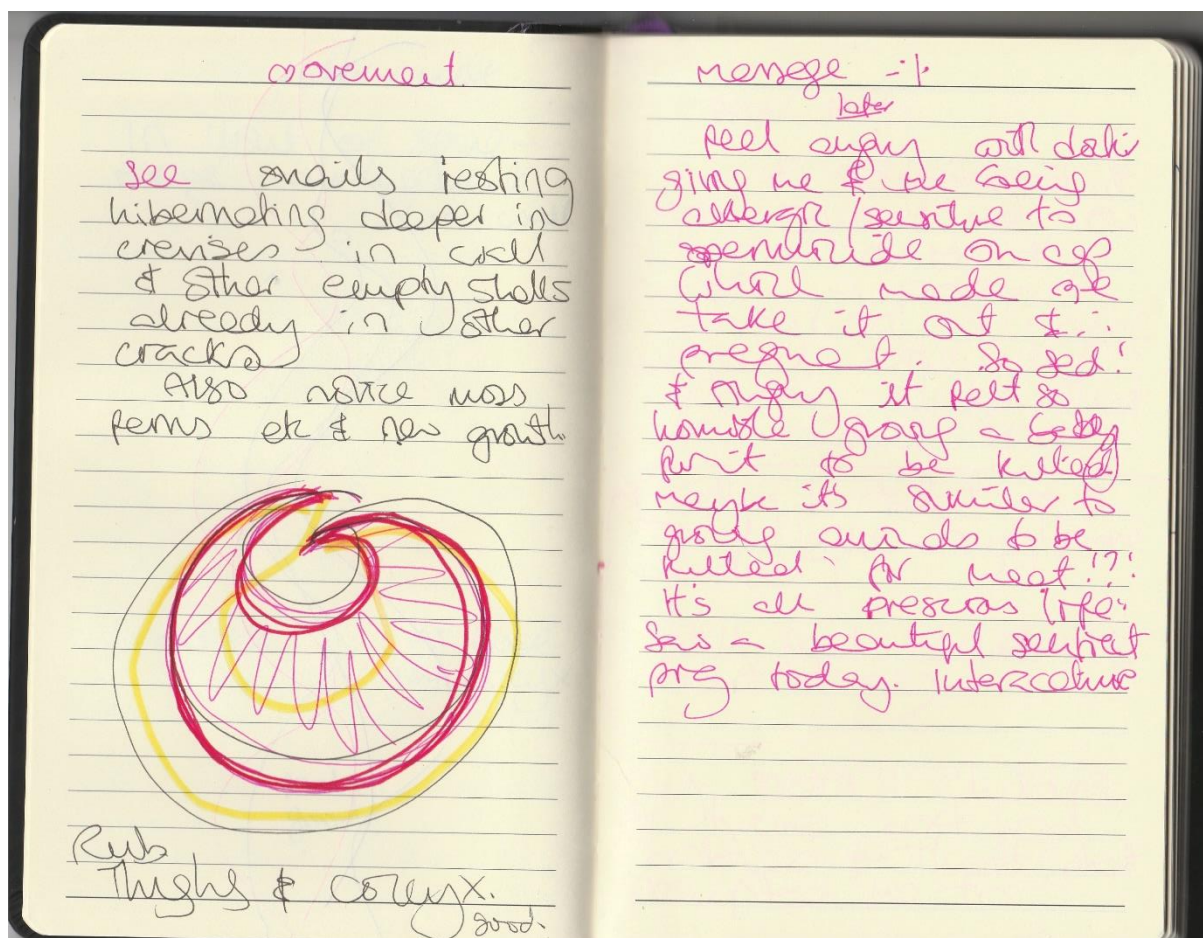 movement.
see snails resting
hibernating deeper in
crevises in wall
& other empty shells
already in other
cracks
Also notice moss
ferns etc & new growth.
Rub
Thighs & coccyx.
good.
message -:
later
feel angry with
giving me & me being
allergic/sensitive to
spermicide on cap
which made me
take it out & ∴
pregnant. So sad!
& angry it felt so
horrible growing a baby
for it to be killed
maybe it's similar to
growing animals to be
killed for meat!?!
It's all precious life.
Saw a beautiful sentient
pig today. Interactive